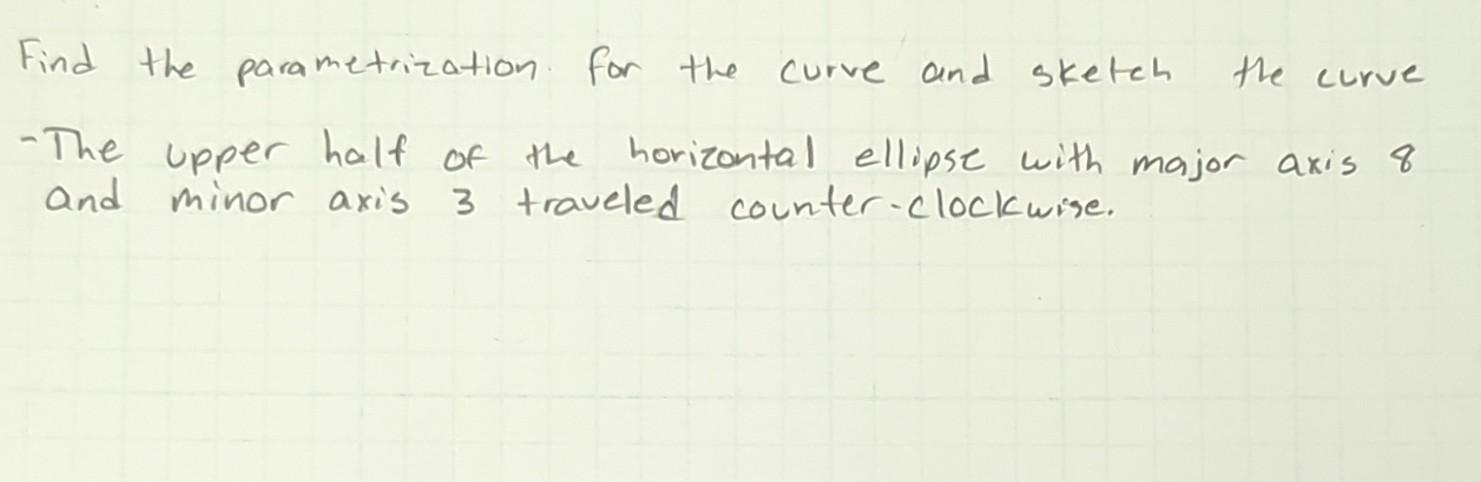 Find the parametrization. for the curve and sketch the curve
-The upper half of the horizontal ellipse with major axis 8
and minor axis 3 traveled counter-clockwise.